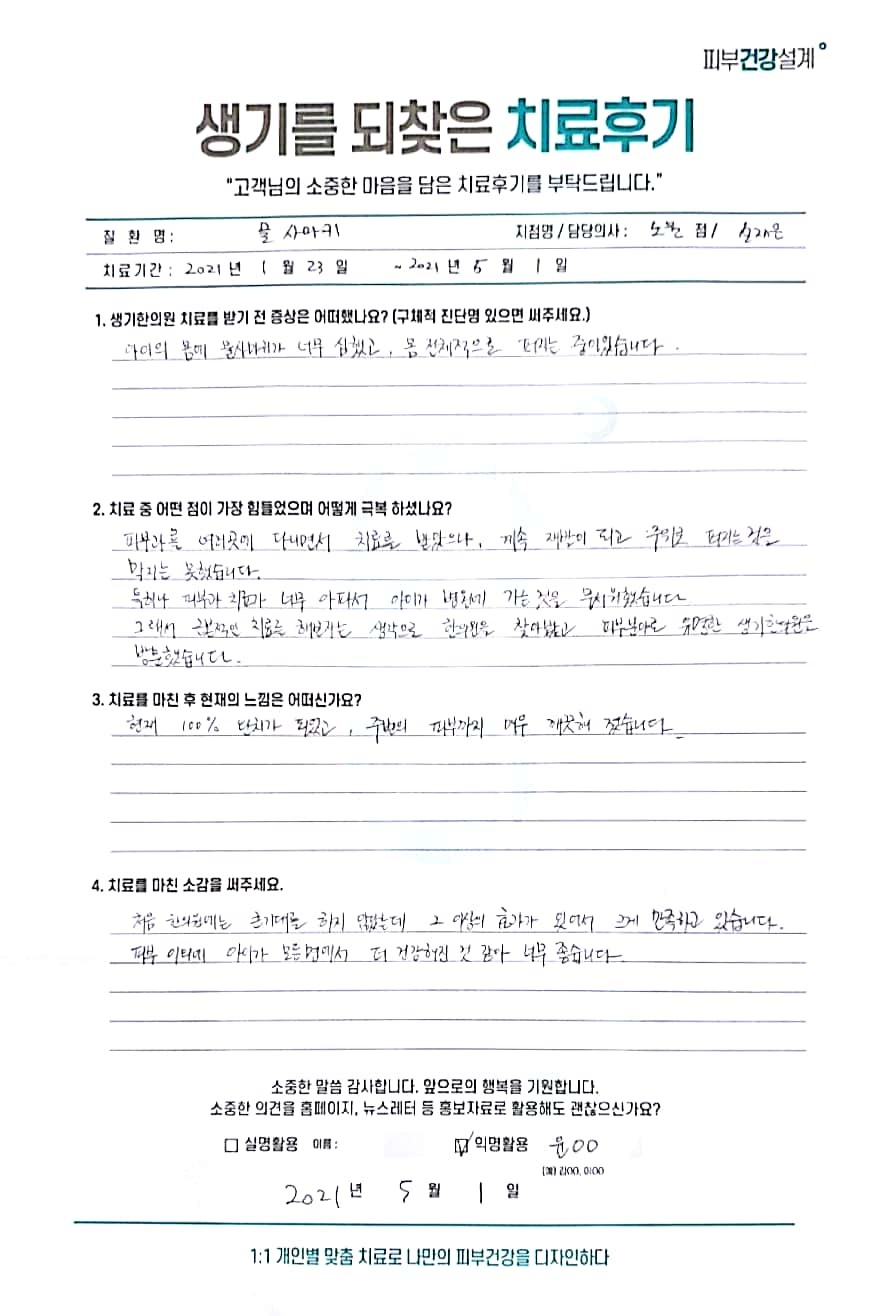 피부건강설계
생기를 되찾은 치료후기
"고객님의 소중한 마음을 담은 치료후기를 부탁드립니다."
질 환 명: 물 사마귀 지점명 / 담당의사: 노원 점/
치료기간: 2021 년 1 월 23 일 ~ 2021 년 5 월 1 일
1. 생기한의원 치료를 받기 전 증상은 어떠했나요? (구체적 진단명 있으면 써주세요.)
아이의 몸에 물사마귀가 너무 심했고, 몸 전체적으로 퍼지는 중이었습니다.
2. 치료 중 어떤 점이 가장 힘들었으며 어떻게 극복 하셨나요?
피부과를 여러곳에 다니면서 치료를 받았으나, 계속 재발이 되고 주위로 퍼지는 것은
막지는 못했습니다.
특히나 피부과 치료가 너무 아파서 아이가 병원에 가는 것을 무서워했습니다
그래서 근본적인 치료를 해보자는 생각으로 한의원을 찾아봤고 피부분야로 유명한 생기한의원을
방문했습니다.
3. 치료를 마친 후 현재의 느낌은 어떠신가요?
현재 100% 완치가 되었고, 주변의 피부까지 매우 깨끗해 졌습니다.
4. 치료를 마친 소감을 써주세요.
처음 한의원에는 큰기대를 하지 않았는데 그 이상의 효과가 있어서 크게 만족하고 있습니다.
피부 이외에 아이가 모든면에서 더 건강해진 것 같아 너무 좋습니다.
소중한 말씀 감사합니다. 앞으로의 행복을 기원합니다.
소중한 의견을 홈페이지, 뉴스레터 등 홍보자료로 활용해도 괜찮으신가요?
실명활용 이름: 익명활용 윤OO
(예) 김OO, 이OO
2021 년 5 월 1 일
1:1 개인별 맞춤 치료로 나만의 피부건강을 디자인하다